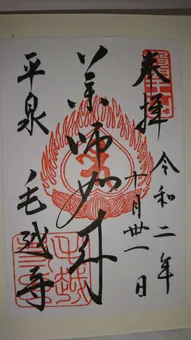 奉拝
令和二年
十月卅一日
薬師如来
平泉 毛越寺